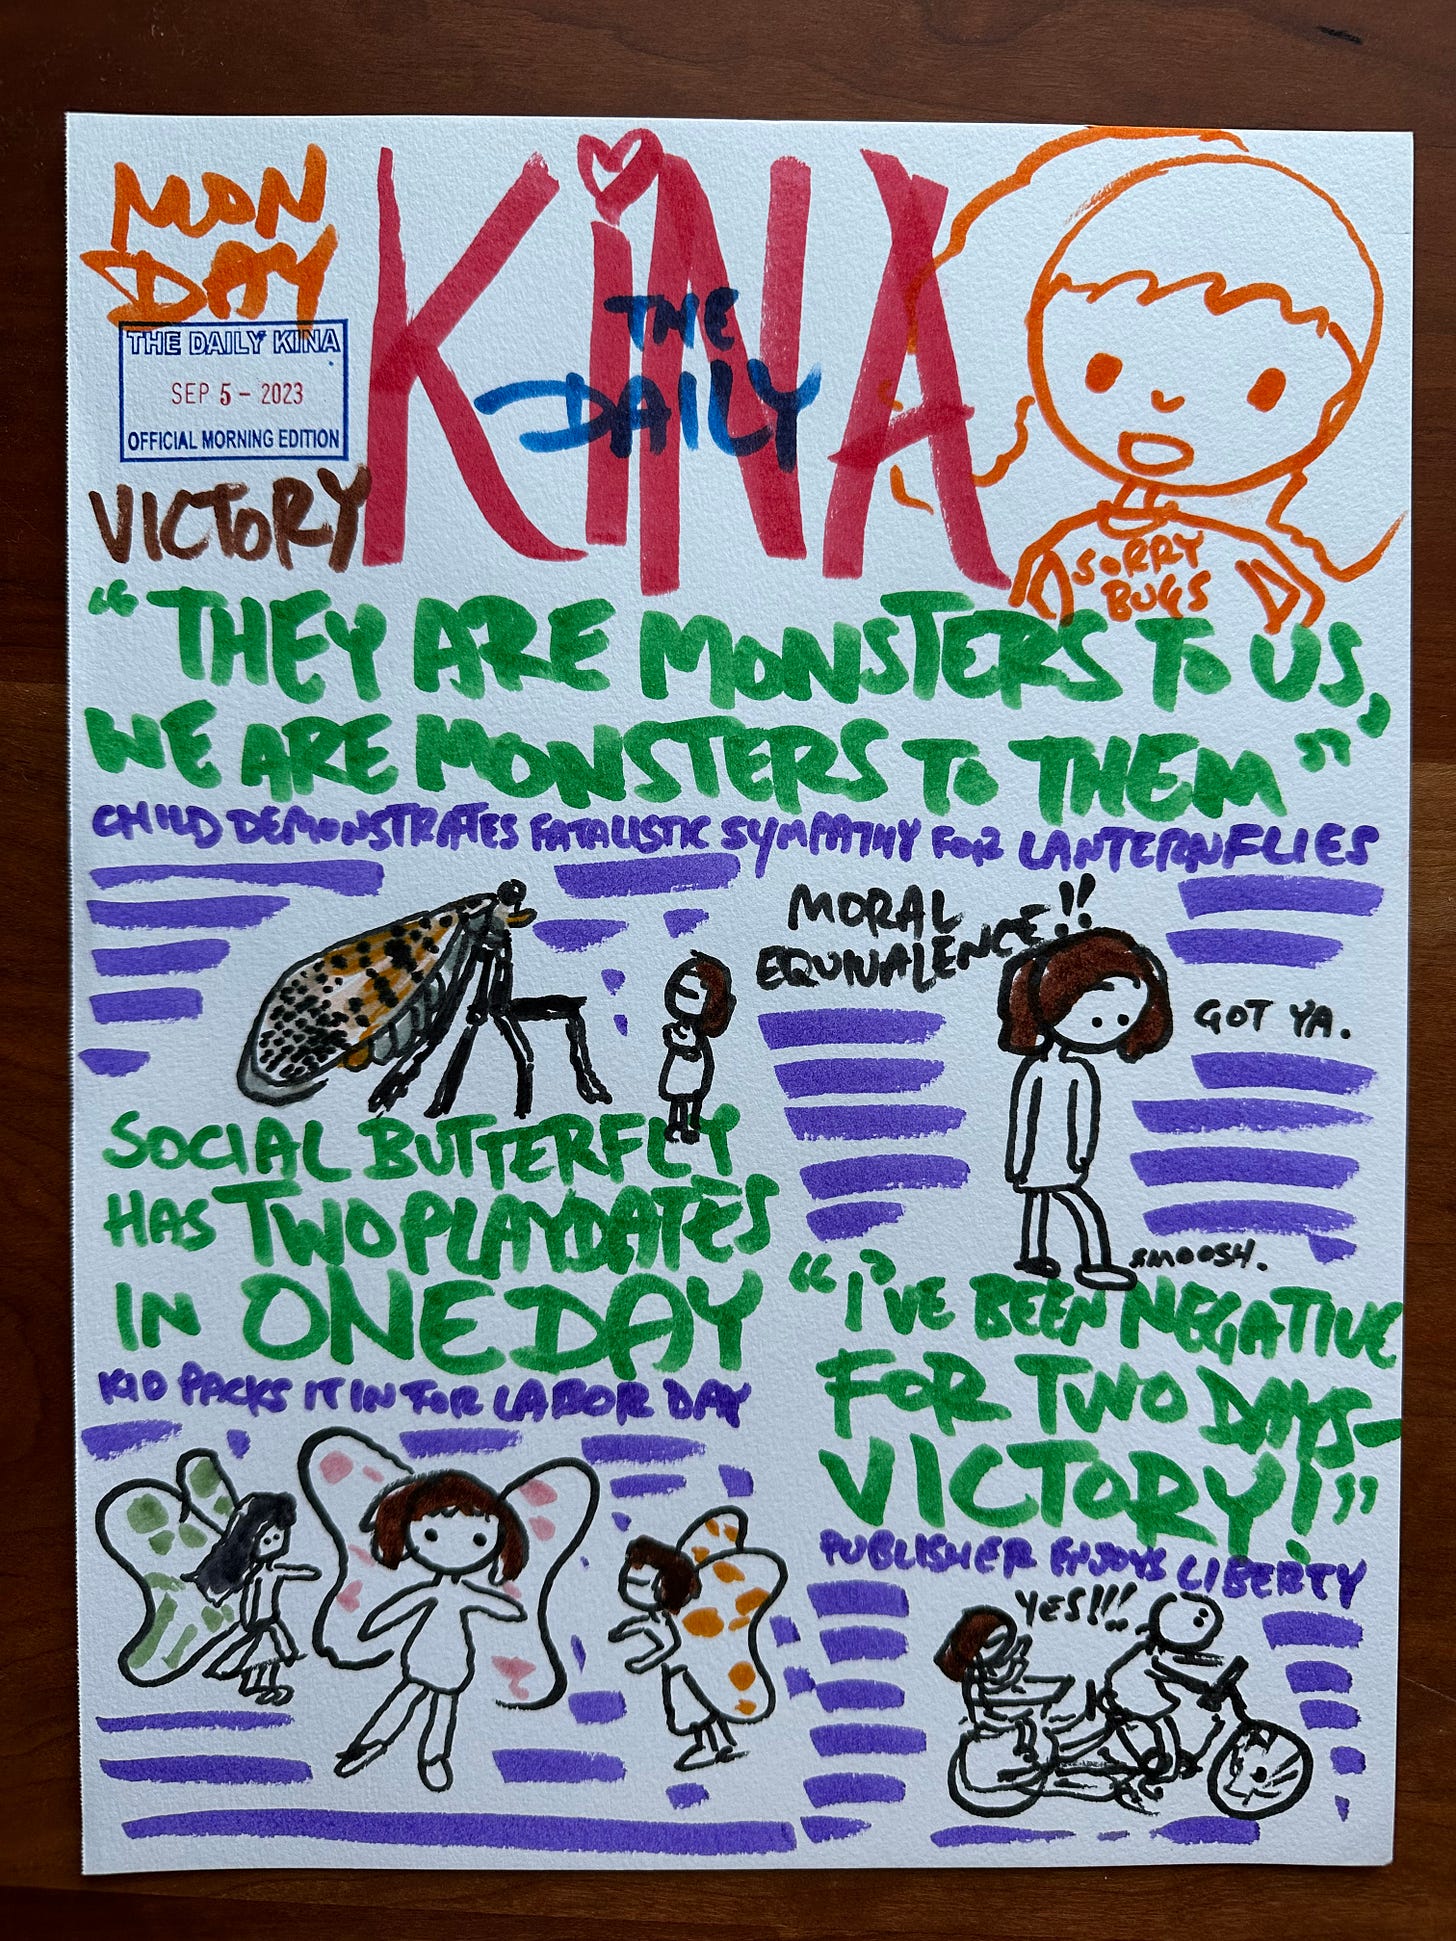 MON
DAY
KiNA
THE
DAILY
THE DAILY KINA
SEP 5 - 2023
OFFICIAL MORNING EDITION
VICTORY
SORRY
BUGS
"THEY ARE MONSTERS TO US,
WE ARE MONSTERS TO THEM"
CHILD DEMONSTRATES FATALISTIC SYMPATHY FOR LANTERNFLIES
MORAL
EQUIVALENCE!!
GOT YA.
SMOOSH.
SOCIAL BUTTERFLY
HAS TWO PLAYDATES
IN ONE DAY
KID PACKS IT IN FOR LABOR DAY
"I'VE BEEN NEGATIVE
FOR TWO DAYS-
VICTORY!"
PUBLISHER ENJOYS LIBERTY
YES!!!